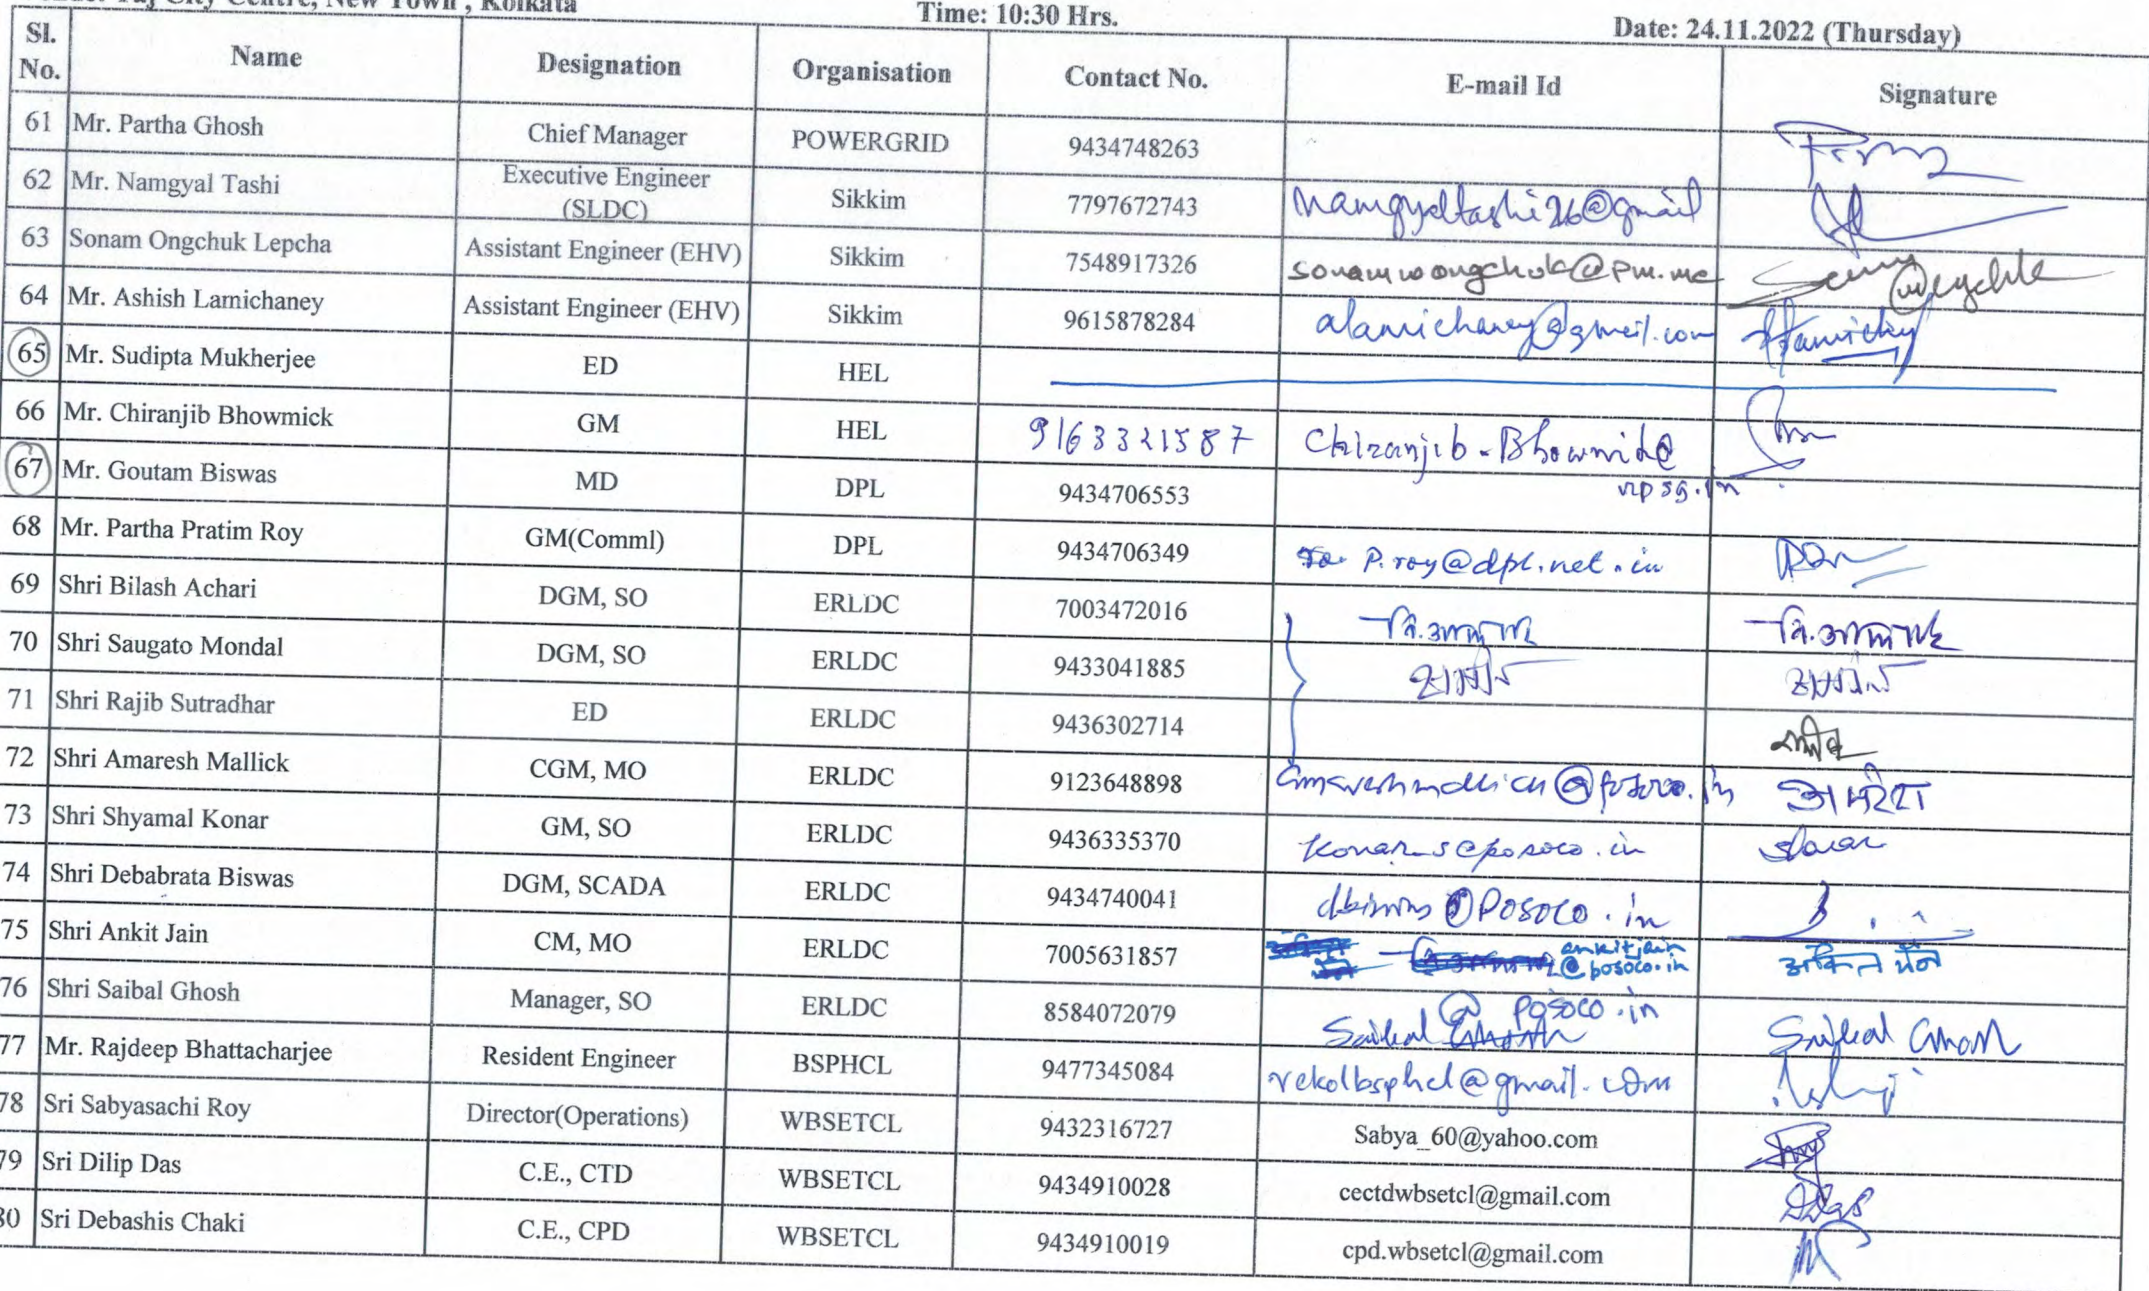 Taj City Centre, New Town , Kolkata Time: 10:30 Hrs. Date: 24.11.2022 (Thursday)
Sl. No. Name Designation Organisation Contact No. E-mail Id Signature
61 Mr. Partha Ghosh Chief Manager POWERGRID 9434748263
62 Mr. Namgyal Tashi Executive Engineer (SLDC) Sikkim 7797672743 namgyaltashi26@gmail
63 Sonam Ongchuk Lepcha Assistant Engineer (EHV) Sikkim 7548917326 sonamwongchuk@pm.me
64 Mr. Ashish Lamichaney Assistant Engineer (EHV) Sikkim 9615878284 alamichaney@gmail.com
65 Mr. Sudipta Mukherjee ED HEL
66 Mr. Chiranjib Bhowmick GM HEL 9163321587 Chiranjib.Bhowmick@
rpsg.in
67 Mr. Goutam Biswas MD DPL 9434706553
68 Mr. Partha Pratim Roy GM(Comml) DPL 9434706349 P.roy@dpl.net.in
69 Shri Bilash Achari DGM, SO ERLDC 7003472016
70 Shri Saugato Mondal DGM, SO ERLDC 9433041885
71 Shri Rajib Sutradhar ED ERLDC 9436302714
72 Shri Amaresh Mallick CGM, MO ERLDC 9123648898 amareshmallick@posoco.in अमरेश
73 Shri Shyamal Konar GM, SO ERLDC 9436335370 konar_s@posoco.in
74 Shri Debabrata Biswas DGM, SCADA ERLDC 9434740041 @posoco.in
75 Shri Ankit Jain CM, MO ERLDC 7005631857 ankit.jain @posoco.in अंकित जैन
76 Shri Saibal Ghosh Manager, SO ERLDC 8584072079 Saibal @ posoco.in Saibal Ghosh
77 Mr. Rajdeep Bhattacharjee Resident Engineer BSPHCL 9477345084 rekolbsphcl@gmail.com
78 Sri Sabyasachi Roy Director(Operations) WBSETCL 9432316727 Sabya_60@yahoo.com
79 Sri Dilip Das C.E., CTD WBSETCL 9434910028 cectdwbsetcl@gmail.com DDas
80 Sri Debashis Chaki C.E., CPD WBSETCL 9434910019 cpd.wbsetcl@gmail.com